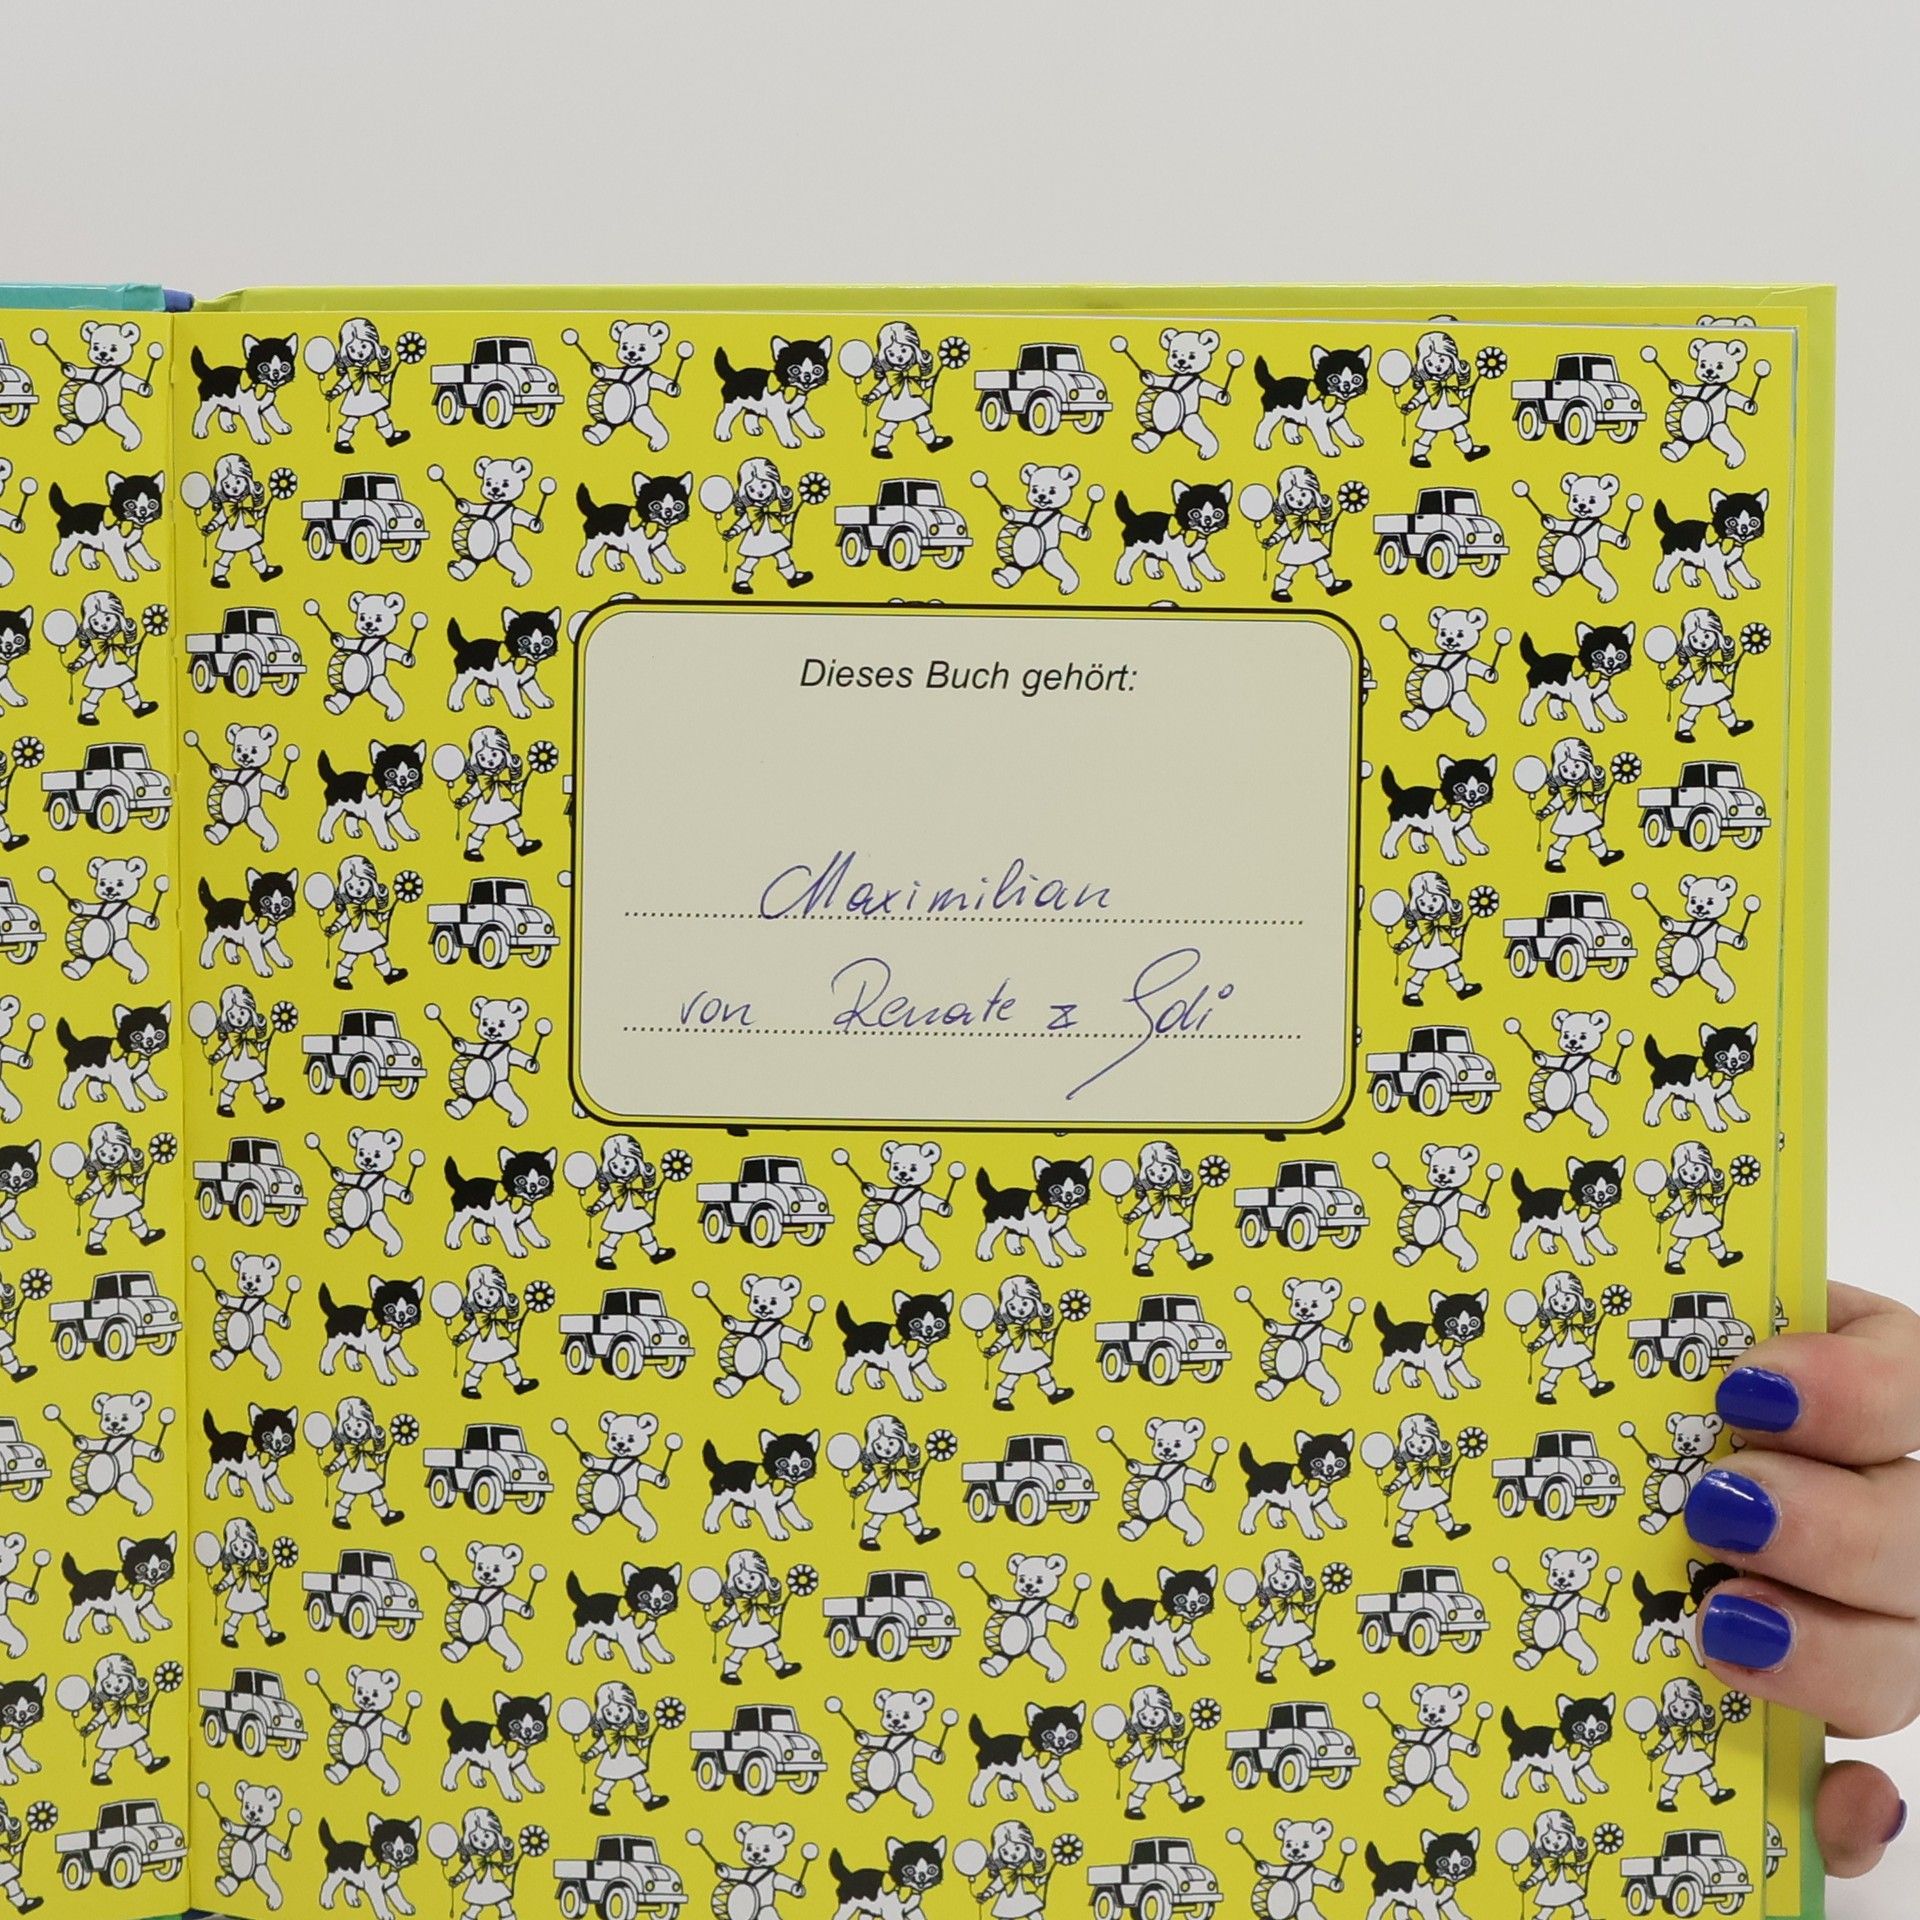 Dieses Buch gehört:
Maximilian
von Renate &